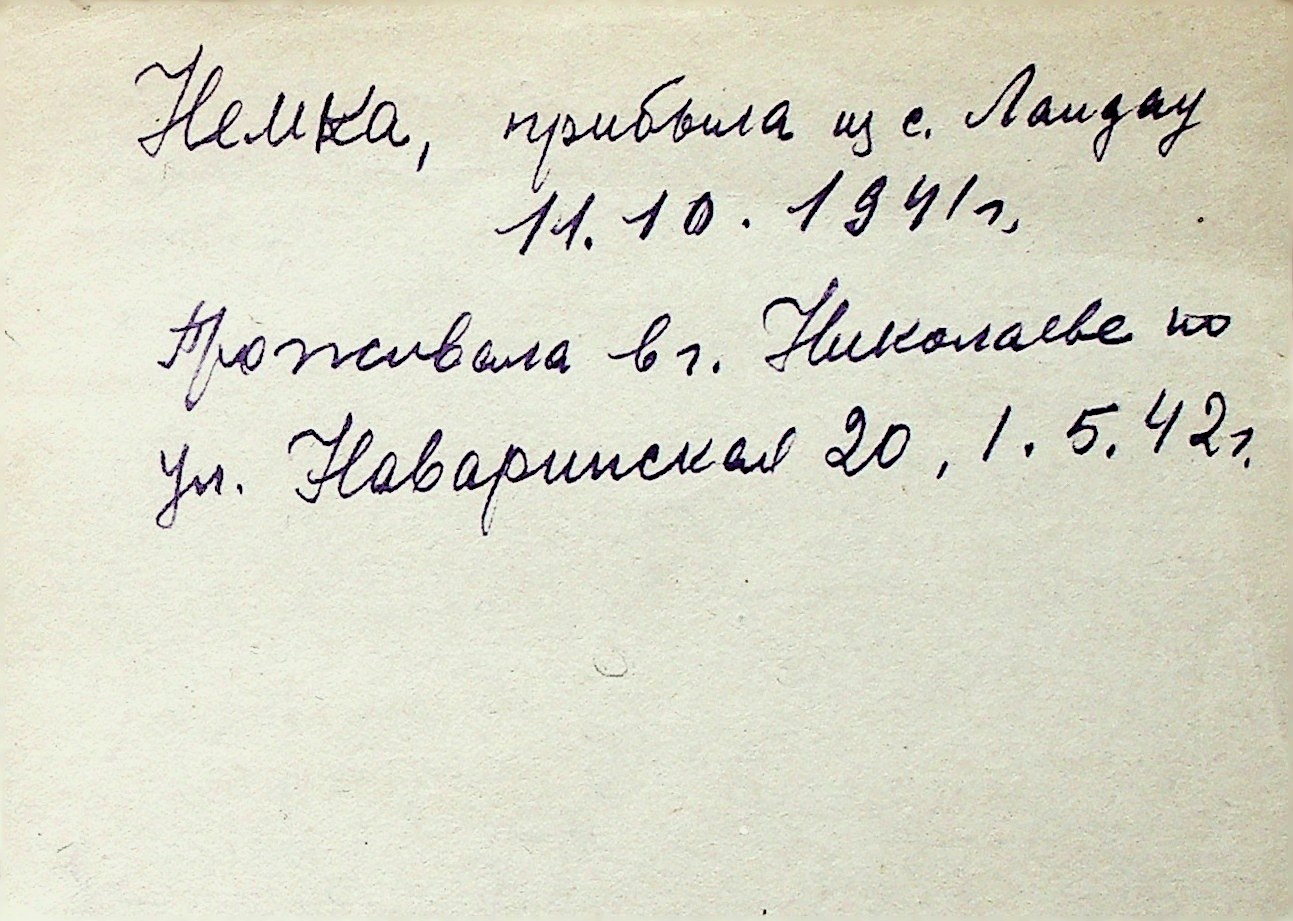 Немка, прибыла из с. Ландау
11.10.1941г.
Проживала в г. Николаеве по
ул. Наваринская 20, 1.5.42г.